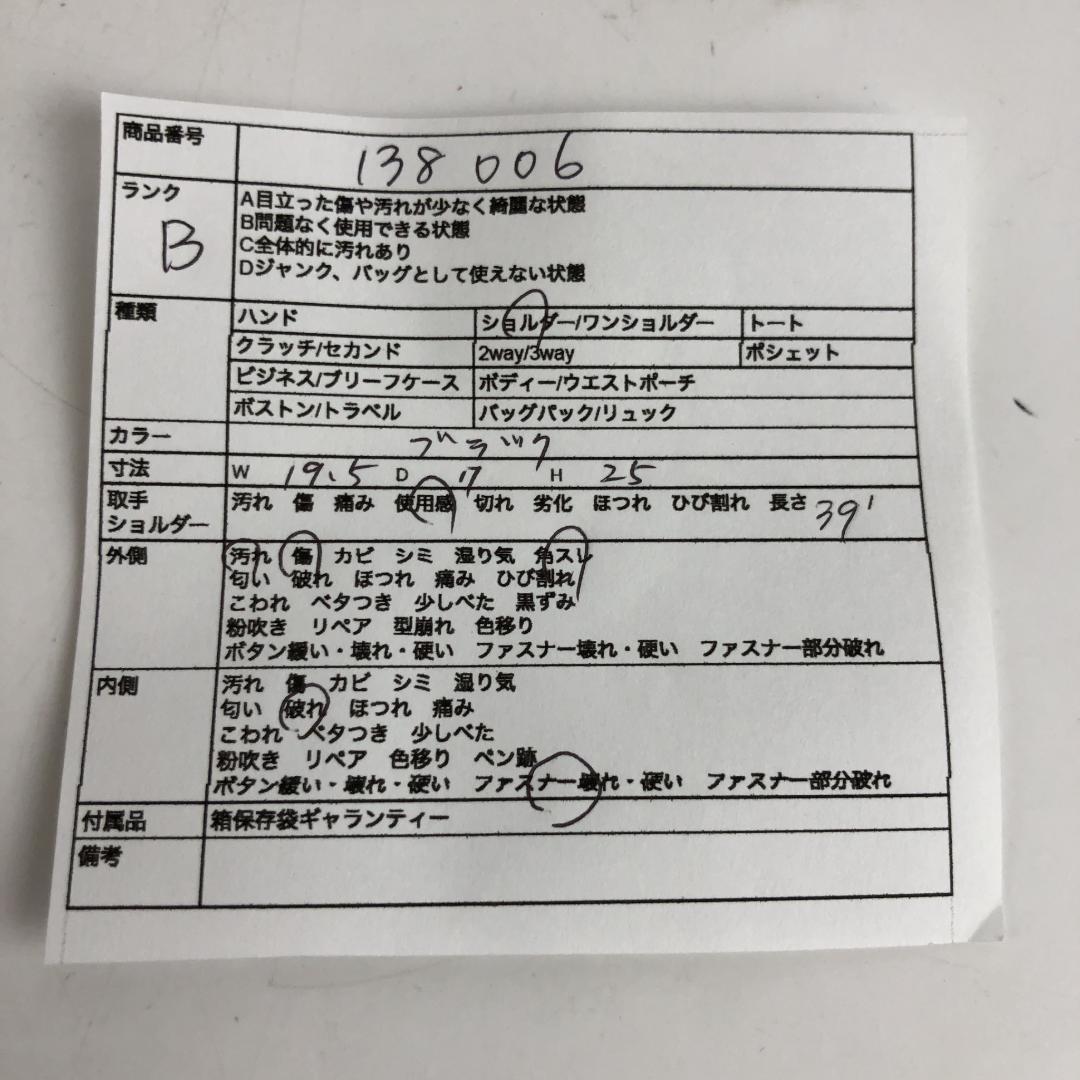 商品番号 138006
ランク B
A目立った傷や汚れが少なく綺麗な状態
B問題なく使用できる状態
C全体的に汚れあり
Dジャンク、バッグとして使えない状態
種類 ハンド ショルダー/ワンショルダー トート
クラッチ/セカンド 2way/3way ポシェット
ビジネス/ブリーフケース ボディー/ウエストポーチ
ボストン/トラベル バッグパック/リュック
カラー ブラック
寸法 W 19.5 D 17 H 25
取手 汚れ 傷 痛み 使用感 切れ 劣化 ほつれ ひび割れ 長さ 39
ショルダー
外側 汚れ 傷 カビ シミ 湿り気 角スレ
匂い 破れ ほつれ 痛み ひび割れ
こわれ ベタつき 少しべた 黒ずみ
粉吹き リペア 型崩れ 色移り
ボタン緩い・壊れ・硬い ファスナー壊れ・硬い ファスナー部分破れ
内側 汚れ 傷 カビ シミ 湿り気
匂い 破れ ほつれ 痛み
こわれ ベタつき 少しべた
粉吹き リペア 色移り ペン跡
ボタン緩い・壊れ・硬い ファスナー壊れ・硬い ファスナー部分破れ
付属品 箱保存袋ギャランティー
備考